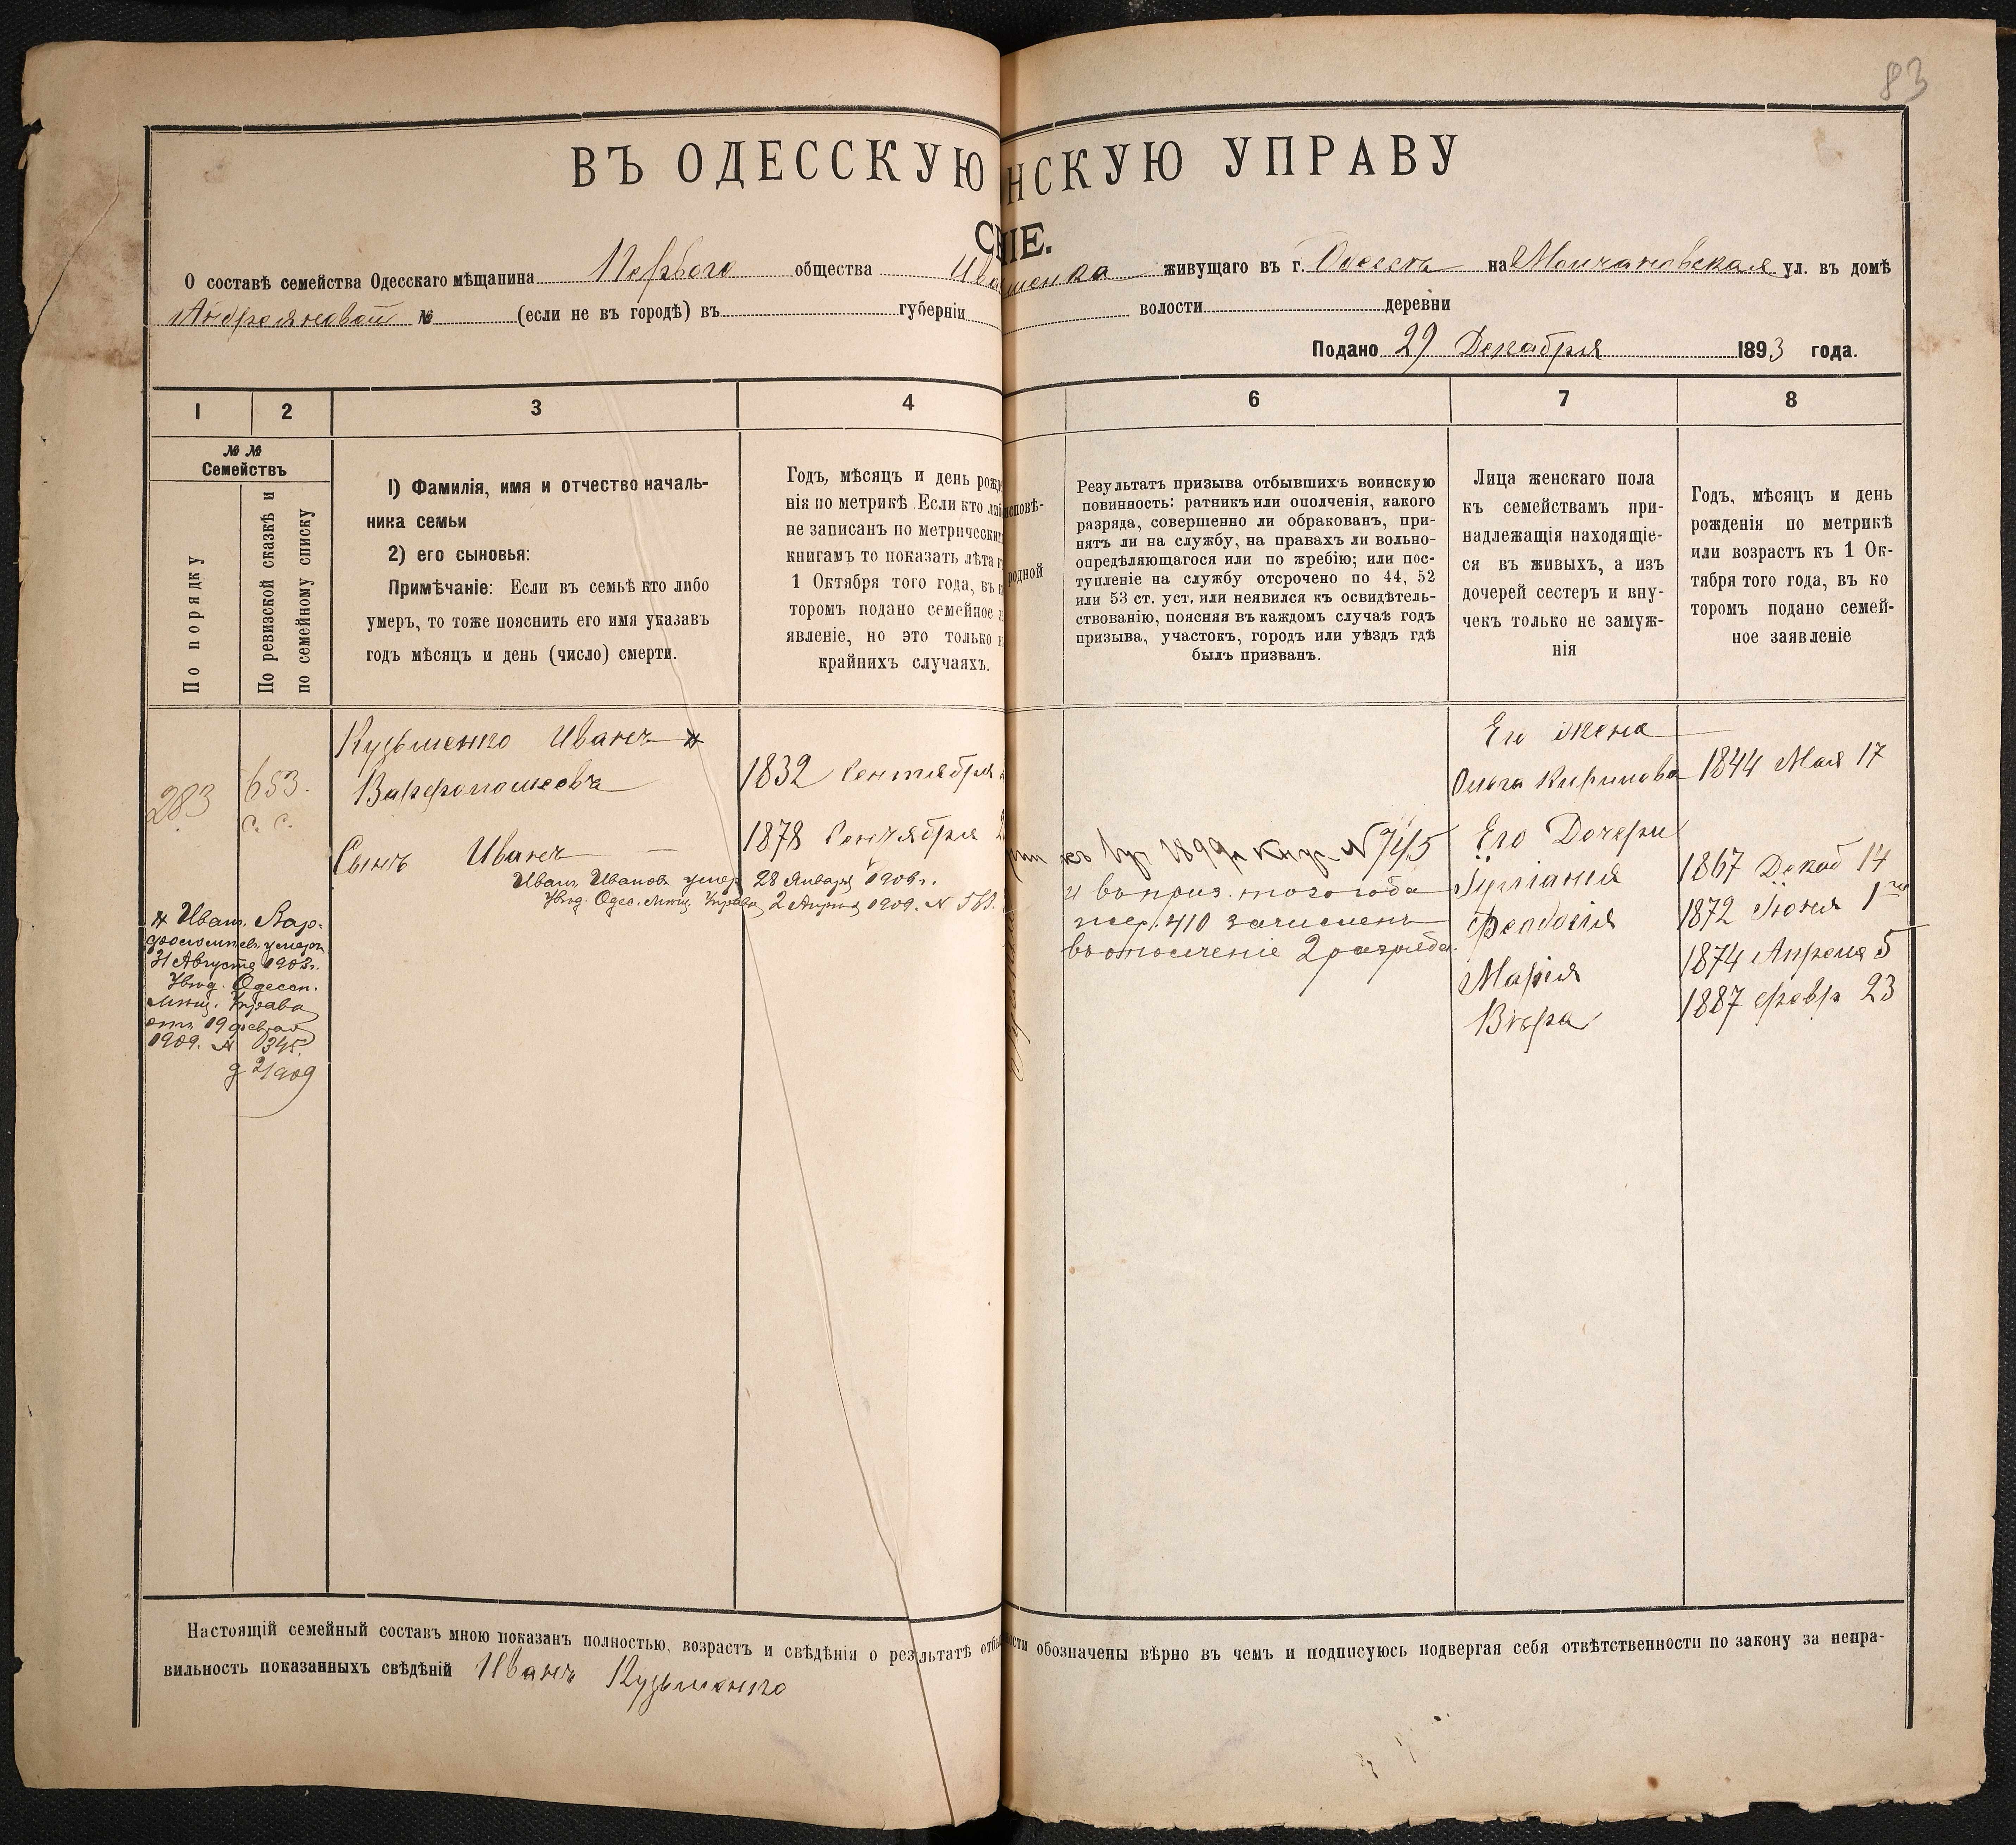 83
ВЪ ОДЕССКУЮ НСКУЮ УПРАВУ
НІЕ.
О составѣ семейства Одесскаго мѣщанина Перваго общества живущаго въ г. Одессѣ на Молчановская ул. въ домѣ
№ (если не въ городѣ) въ губерніи волости деревни
Подано 29 Декабря 1893 года.
1 2 3 4 6 7 8
№ №
Семействъ
По порядку
По ревизской сказкѣ и
по семейному списку
1) Фамилія, имя и отчество началь-
ника семьи
2) его сыновья:
Примѣчаніе: Если въ семьѣ кто либо
умеръ, то тоже пояснить его имя указавъ
годъ мѣсяцъ и день (число) смерти.
Годъ, мѣсяцъ и день рожд
нія по метрикѣ Если кто ли
не записанъ по метрически
книгамъ то показать лѣта
1 Октября того года, въ
торомъ подано семейное
явленіе, но это только
крайнихъ случаяхъ.
исповѣ-
родной
Результатъ призыва отбывшихъ воинскую
повинность: ратникъ или ополченія, какого
разряда, совершенно ли обракованъ, при-
нятъ ли на службу, на правахъ ли вольно-
опредѣляющагося или по жребію; или пос-
тупленіе на службу отсрочено по 44, 52
или 53 ст. уст. или неявился къ освидѣтель-
ствованію, поясняя въ каждомъ случаѣ годъ
призыва, участокъ, городъ или уѣздъ гдѣ
былъ призванъ.
Лица женскаго пола
къ семействамъ при-
надлежащія находящіе-
ся въ живыхъ, а изъ
дочерей сестеръ и вну-
чекъ только не замуж-
нія
Годъ, мѣсяцъ и день
рожденія по метрикѣ
или возрастъ къ 1 Ок-
тября того года, въ ко
торомъ подано семей-
ное заявленіе
283
653.
с. с.
Кузьменко Иванъ
Варфоломеевъ
1832 Сентября
Сынъ Иванъ
1878 Сентября 2
Иванъ Ивановъ умеръ 28 Января 190
Увѣд. Одес. Мѣщ. Управы 2 Апрѣля 1909. №
Иванъ Вар-
фоломеевъ умеръ
31 Августа 1903г.
Увѣд. Одесск.
Мѣщ. Управы
отъ 19 февраля
1909. № 345.
1899 № 745
и въ приз. того года
жер. 410 зачисленъ
въ ополченіе 2 разряда.
Его жена
Ольга Кирилова 1844 Мая 17
Его Дочери
Іуліанія 1867 Декаб 14
Феодосія 1872 Іюня 1го
Марія 1874 Апреля 5
Вѣра 1887 февр 23
Настоящій семейный составъ мною показанъ полностью, возрастъ и свѣдѣнія о результатѣ отбы ности обозначены вѣрно въ чемъ и подписуюсь подвергая себя отвѣтственности по закону за непра-
вильность показанныхъ свѣдѣній Иванъ Кузьменко